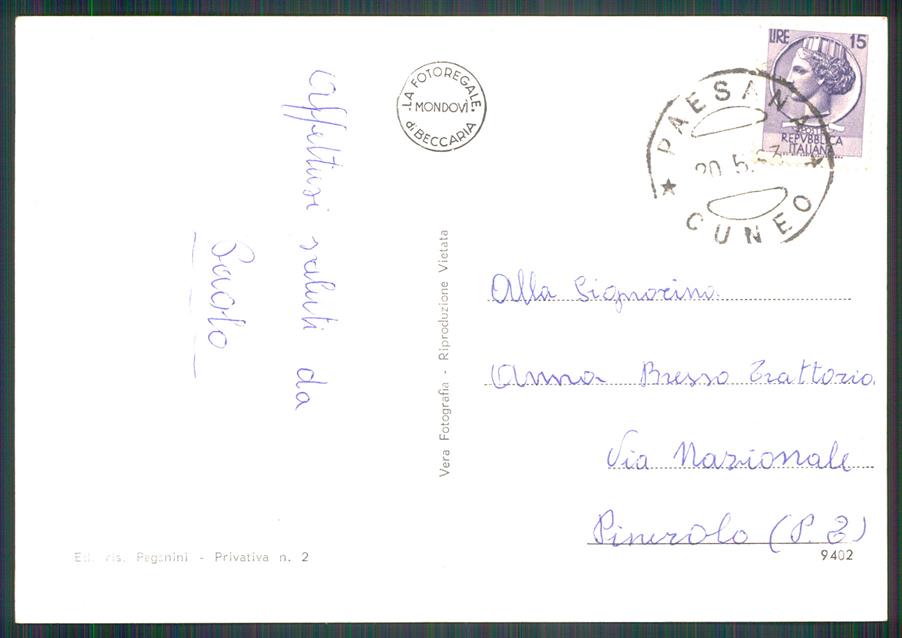 LA FOTOREGALE
MONDOVÌ
di BECCARIA
LIRE 15
POSTE
REPVBBLICA
ITALIANA
PAESANA
20.5.63
CUNEO
Affettuosi saluti da
Paolo
Vera Fotografia - Riproduzione Vietata
Alla Signorina
Anna Bresso Trattoria
Via Nazionale
Pinerolo (P. )
Ed. ris. Paganini - Privativa n. 2
9402